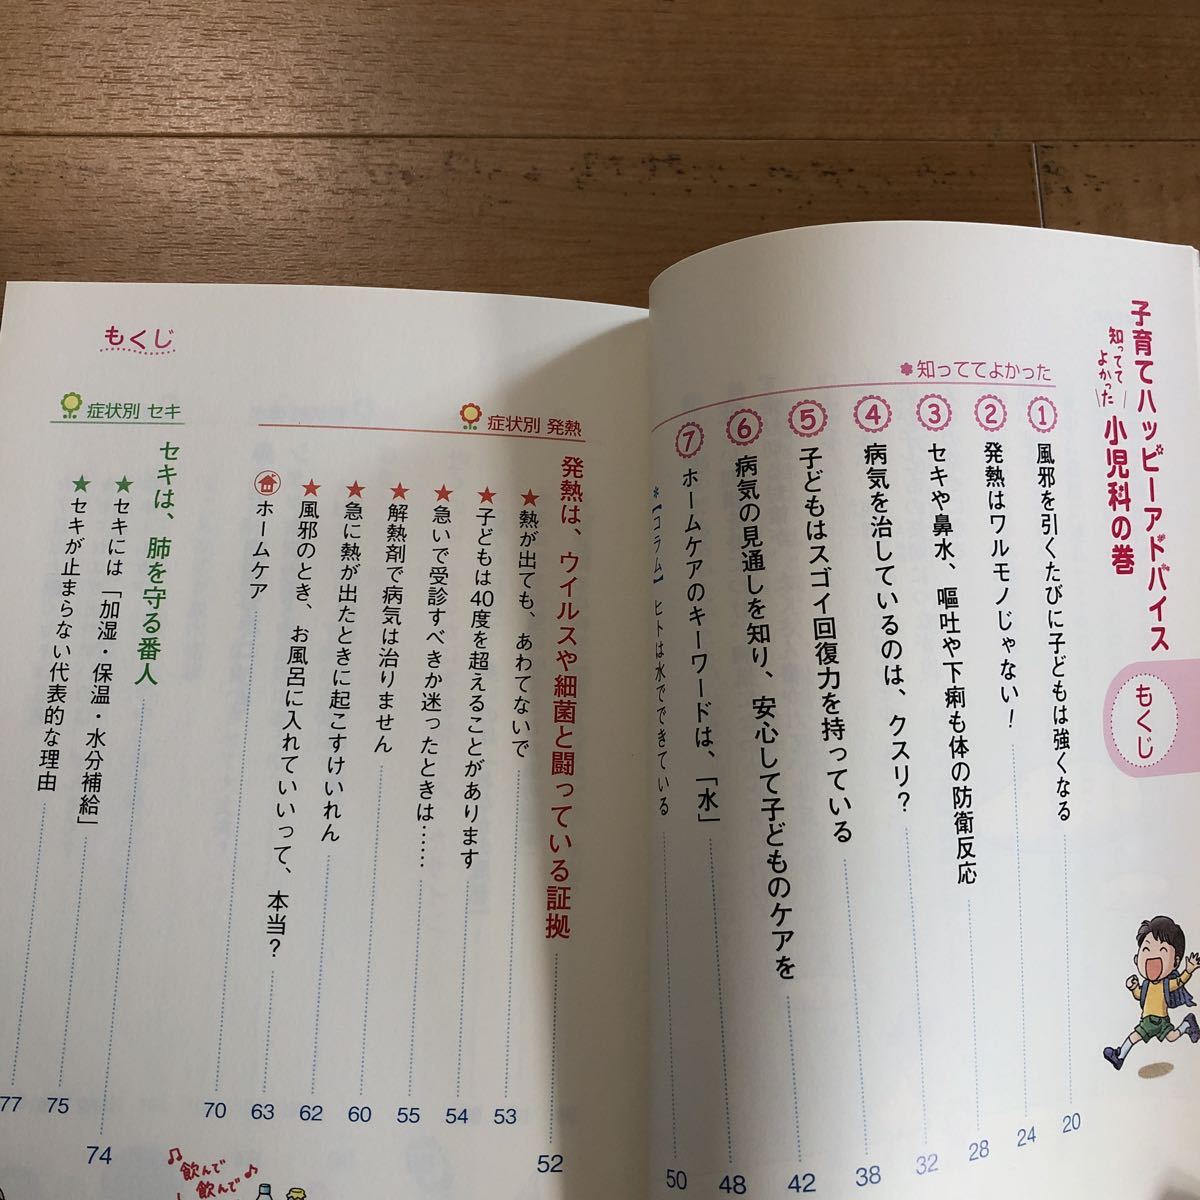 子育てハッピーアドバイス
知ってて
よかった
小児科の巻
もくじ
✽知っててよかった
① 風邪を引くたびに子どもは強くなる 20
② 発熱はワルモノじゃない！ 24
③ セキや鼻水、嘔吐や下痢も体の防衛反応 28
④ 病気を治しているのは、クスリ？ 32
⑤ 子どもはスゴイ回復力を持っている 38
⑥ 病気の見通しを知り、安心して子どものケアを 42
⑦ ホームケアのキーワードは、「水」 48
＊【コラム】ヒトは水でできている 50
もくじ
症状別 発熱
発熱は、ウイルスや細菌と闘っている証拠 52
★熱が出ても、あわてないで 53
★子どもは40度を超えることがあります 54
★急いで受診すべきか迷ったときは…… 55
★解熱剤で病気は治りません 60
★急に熱が出たときに起こすけいれん 62
★風邪のとき、お風呂に入れていいって、本当？ 63
ホームケア 70
症状別 セキ
セキは、肺を守る番人 74
★セキには「加湿・保温・水分補給」 75
★セキが止まらない代表的な理由 77
♫飲んで♪
飲んで